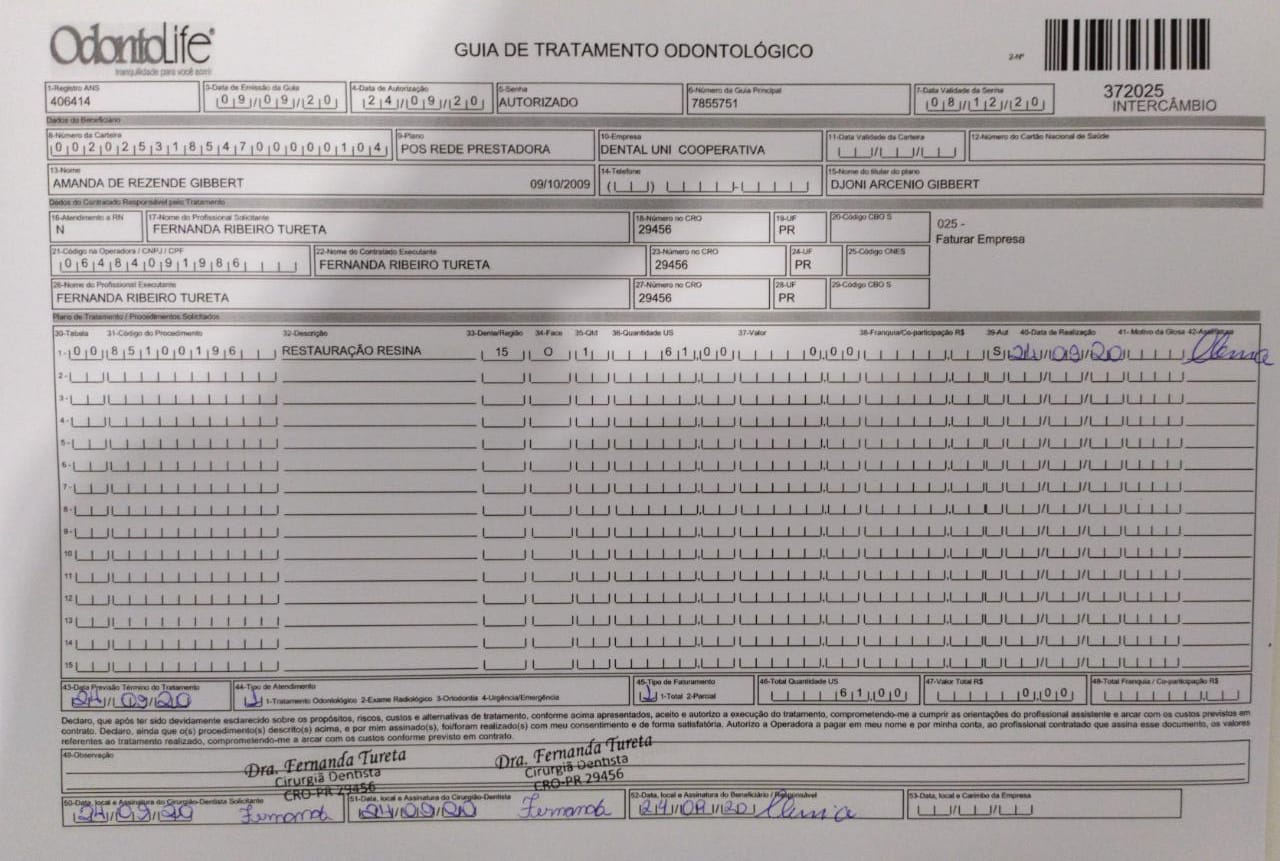 OdontoLife®
tranquilidade para você sorrir
GUIA DE TRATAMENTO ODONTOLÓGICO
2-Nº
372025
INTERCÂMBIO
1-Registro ANS 3-Data de Emissão da Guia 4-Data de Autorização 5-Senha 6-Número da Guia Principal 7-Data Validade da Senha
406414 09/09/20 24/09/20 AUTORIZADO 7855751 08/12/20
Dados do Beneficiário
8-Número da Carteira 9-Plano 10-Empresa 11-Data Validade da Carteira 12-Número do Cartão Nacional de Saúde
00202531854700000104 POS REDE PRESTADORA DENTAL UNI COOPERATIVA
13-Nome 14-Telefone 15-Nome do titular do plano
AMANDA DE REZENDE GIBBERT 09/10/2009 DJONI ARCENIO GIBBERT
Dados do Contratado Responsável pelo Tratamento
16-Atendimento a RN 17-Nome do Profissional Solicitante 18-Número no CRO 19-UF 20-Código CBO S
N FERNANDA RIBEIRO TURETA 29456 PR
025 -
Faturar Empresa
21-Código na Operadora / CNPJ / CPF 22-Nome do Contratado Executante 23-Número no CRO 24-UF 25-Código CNES
06484091986 FERNANDA RIBEIRO TURETA 29456 PR
26-Nome do Profissional Executante 27-Número no CRO 28-UF 29-Código CBO S
FERNANDA RIBEIRO TURETA 29456 PR
Plano de Tratamento / Procedimentos Solicitados
30-Tabela 31-Código do Procedimento 32-Descrição 33-Dente/Região 34-Face 35-Qtd 36-Quantidade US 37-Valor 38-Franquia/Co-participação R$ 39-Aut 40-Data de Realização 41- Motivo da Glosa 42-Assinatura
1- 00 85100196 RESTAURAÇÃO RESINA 15 O 1 61,00 0,00 S 24/09/20
2-
3-
4-
5-
6-
7-
8-
9-
10
11
12
13
14
15
43-Data Previsão Término do Tratamento 44-Tipo de Atendimento 45-Tipo de Faturamento 46-Total Quantidade US 47-Valor Total R$ 48-Total Franquia / Co-participação R$
24/09/20 1 1-Tratamento Odontológico 2-Exame Radiológico 3-Ortodontia 4-Urgência/Emergência 1 1-Total 2-Parcial 61,00 0,00
Declaro, que após ter sido devidamente esclarecido sobre os propósitos, riscos, custos e alternativas de tratamento, conforme acima apresentados, aceito e autorizo a execução do tratamento, comprometendo-me a cumprir as orientações do profissional assistente e arcar com os custos previstos em
contrato. Declaro, ainda que o(s) procedimento(s) descrito(s) acima, e por mim assinado(s), foi/foram realizado(s) com meu consentimento e de forma satisfatória. Autorizo a Operadora a pagar em meu nome e por minha conta, ao profissional contratado que assina esse documento, os valores
referentes ao tratamento realizado, comprometendo-me a arcar com os custos conforme previsto em contrato.
49-Observação
Dra. Fernanda Tureta Dra. Fernanda Tureta
Cirurgiã Dentista Cirurgiã Dentista
CRO-PR 29456 CRO-PR 29456
50-Data, local e Assinatura do Cirurgião-Dentista Solicitante 51-Data, local e Assinatura do Cirurgião-Dentista 52-Data, local e Assinatura do Beneficiário / Responsável 53-Data, local e Carimbo da Empresa
24/09/20 Fernanda 24/09/20 Fernanda 24/09/20